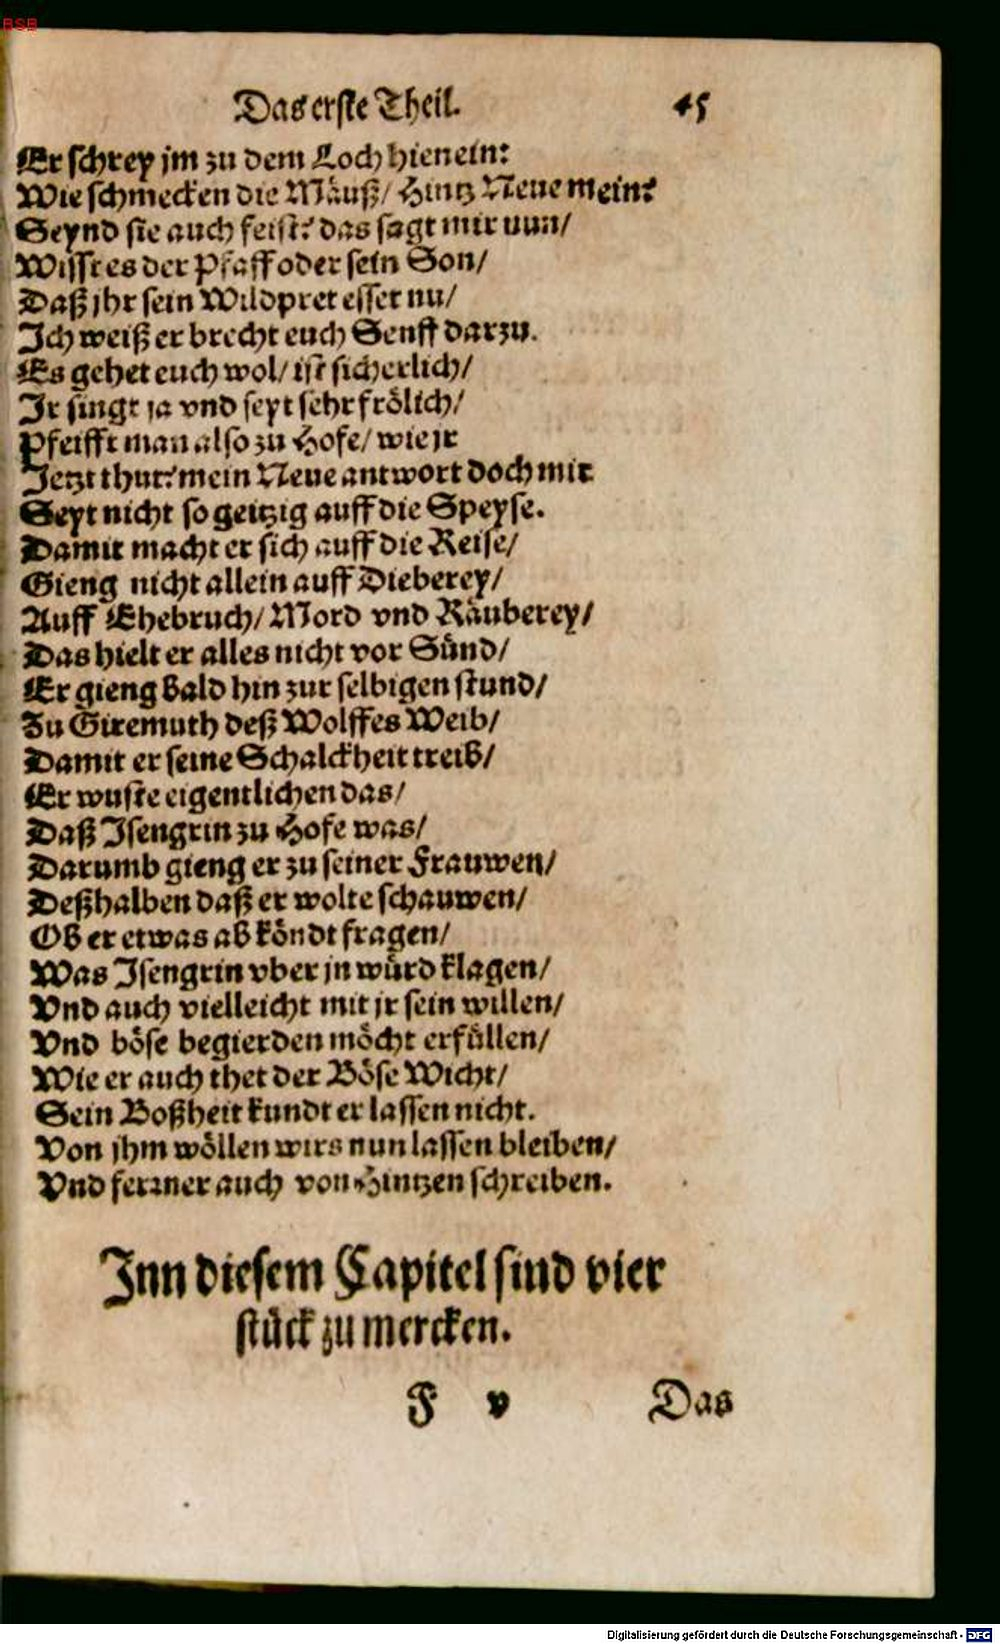 BSB
Das erste Theil. 45
Er schrey jm zu dem Loch hienein:
Wie schmecken die Mäuß/ Hintz Neue mein?
Seynd sie auch feist? das sagt mir nun/
Wisst es der Pfaff oder sein Son/
Daß jhr sein Wildpret esset nu/
Ich weiß er brecht euch Senff darzu.
Es gehet euch wol/ ist sicherlich/
Ir singt ja vnd seyt sehr frölich/
Pfeifft man also zu Hofe/ wie jr
Jetzt thut? mein Neue antwort doch mir
Seyt nicht so geitzig auff die Speyse.
Damit macht er sich auff die Reise/
Gieng nicht allein auff Dieberey/
Auff Ehebruch/ Mord vnd Räuberey/
Das hielt er alles nicht vor Sünd/
Er gieng bald hin zur selbigen stund/
Zu Giremuth deß Wolffes Weib/
Damit er seine Schalckheit treib/
Er wuste eigentlichen das/
Daß Isengrin zu Hofe was/
Darumb gieng er zu seiner Frauwen/
Deßhalben daß er wolte schauwen/
Ob er etwas ab köndt fragen/
Was Isengrin vber jn würd klagen/
Vnd auch vielleicht mit jr sein willen/
Vnd böse begierden möcht erfüllen/
Wie er auch thet der Böse Wicht/
Sein Boßheit kundt er lassen nicht.
Von jhm wöllen wirs nun lassen bleiben/
Vnd ferrner auch von Hintzen schreiben.
Inn diesem Capitel sind vier
stück zu mercken.
F v Das
Digitalisierung gefördert durch die Deutsche Forschungsgemeinschaft - DFG